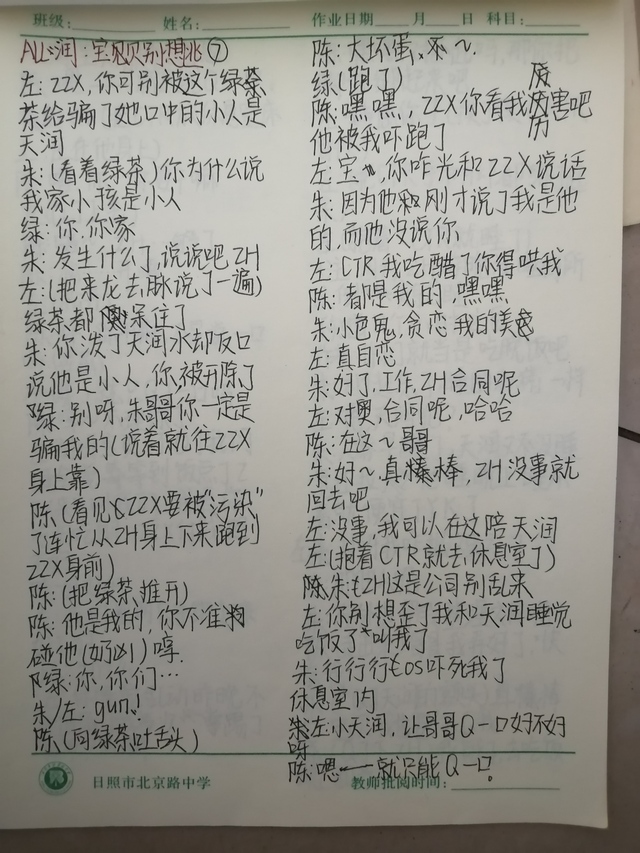 班级: 姓名: 作业日期 月 日 科目:
ALL润:宝贝别想逃⑦
左:ZZX,你可别被这个绿茶
茶给骗了她口中的小人是
天润
朱:(看着绿茶)你为什么说
我家小孩是小人
绿:你.你家
朱:发生什么了,说说吧ZH
左:(把来龙去脉说了一遍)
绿茶都呆住了
朱:你泼了天润水却反口
说他是小人,你被开除了
绿:别呀,朱哥哥你一定是
骗我的(说着就往ZZX
身上靠)
陈(看见ZZX要被“污染”
了连忙从ZH身上下来跑到
ZZX身前)
陈:(把绿茶推开)
陈:他是我的,你不准
碰他(奶凶)哼.
绿:你,你们…
朱/左:gun!
陈(向绿茶吐舌头)
陈:大坏蛋,不~.
绿(跑了)
陈:嘿嘿,ZZX你看我厉害吧
他被我吓跑了
左:宝,你咋光和ZZX说话
朱:因为他刚才说了我是他
的,而他没说你
左:CTR我吃醋了你得哄我
陈:都是我的,嘿嘿
朱:小色鬼,贪恋我的美色
左:真自恋
朱:好了,工作,ZH合同呢
左:对奥,合同呢,哈哈
陈:在这~哥哥
朱:好~真棒棒,ZH没事就
回去吧
左:没事,我可以在这陪天润
左:(抱着CTR就去,休息室了)
朱:ZH这是公司别乱来
左:你别想歪了我和天润睡觉
吃饭了叫我了
朱:行行行OS吓死我了
休息室内
左:小天润,让哥哥Q一口好不好
呀
陈:嗯一就只能Q一口!
日照市北京路中学 教师批阅时间: